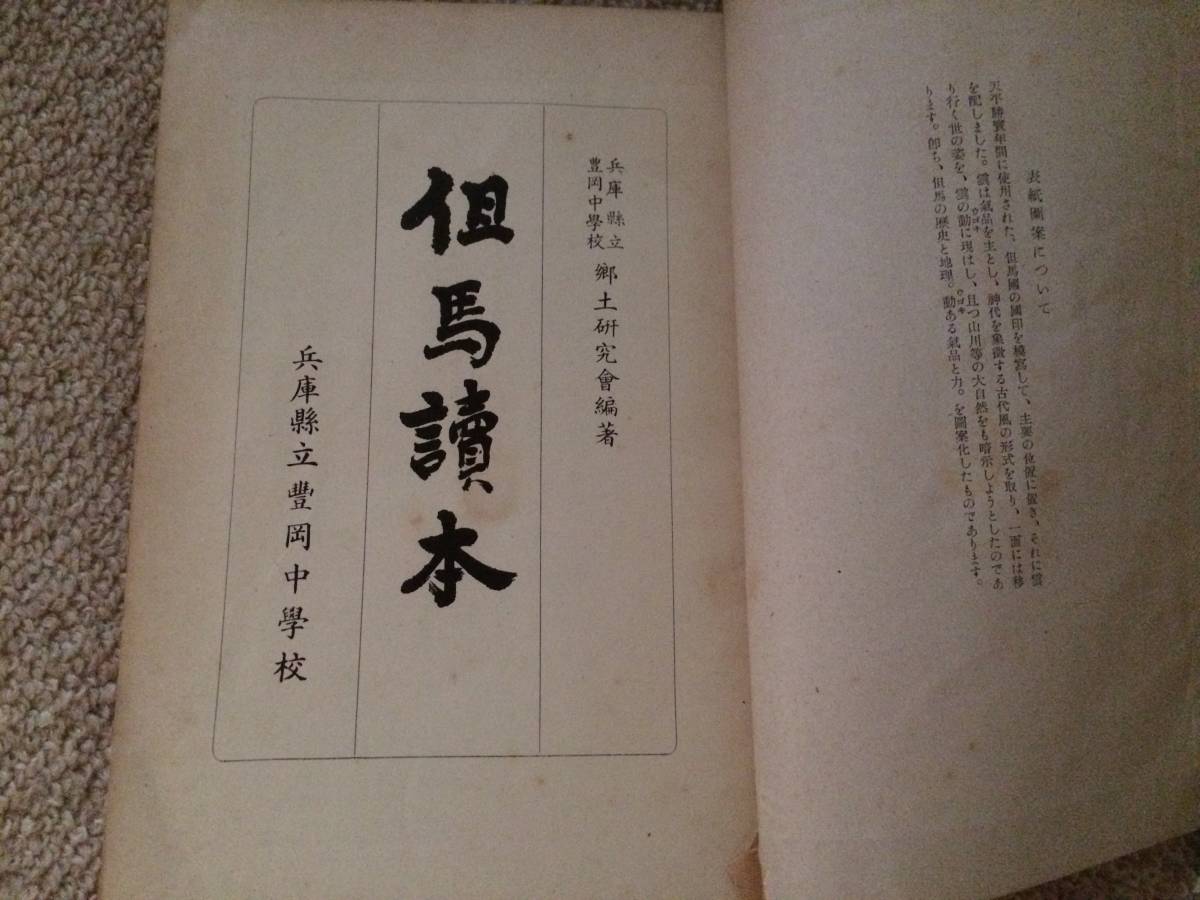 表紙圖案について
天平勝寶年間に使用された、但馬國の國印を模寫して、主要の位置に置き、それに雲
を配しました。雲は氣品を主とし、神代を象徴する古代風の形式を取り、一面には移
り行く世の姿を、雲の動に現はし、且つ山川等の大自然をも暗示しようとしたのであ
ります。卽ち、但馬の歷史と地理。動ある氣品と力。を圖案化したものであります。
兵庫縣立
豐岡中學校
鄕土硏究會編著
但馬讀本
兵庫縣立豐岡中學校